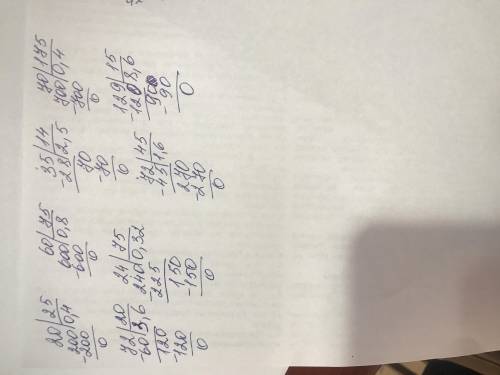 20|25
200|0,4
-200
0
60|75
600|0,8
-600
0
35|14
-28|2,5
70
-70
0
70|175
700|0,4
-700
0
72|20
-60|3,6
120
-120
0
24|75
240|0,32
-225
150
-150
0
72|45
-45|1,6
270
-270
0
129|15
-120|8,6
90
-90
0